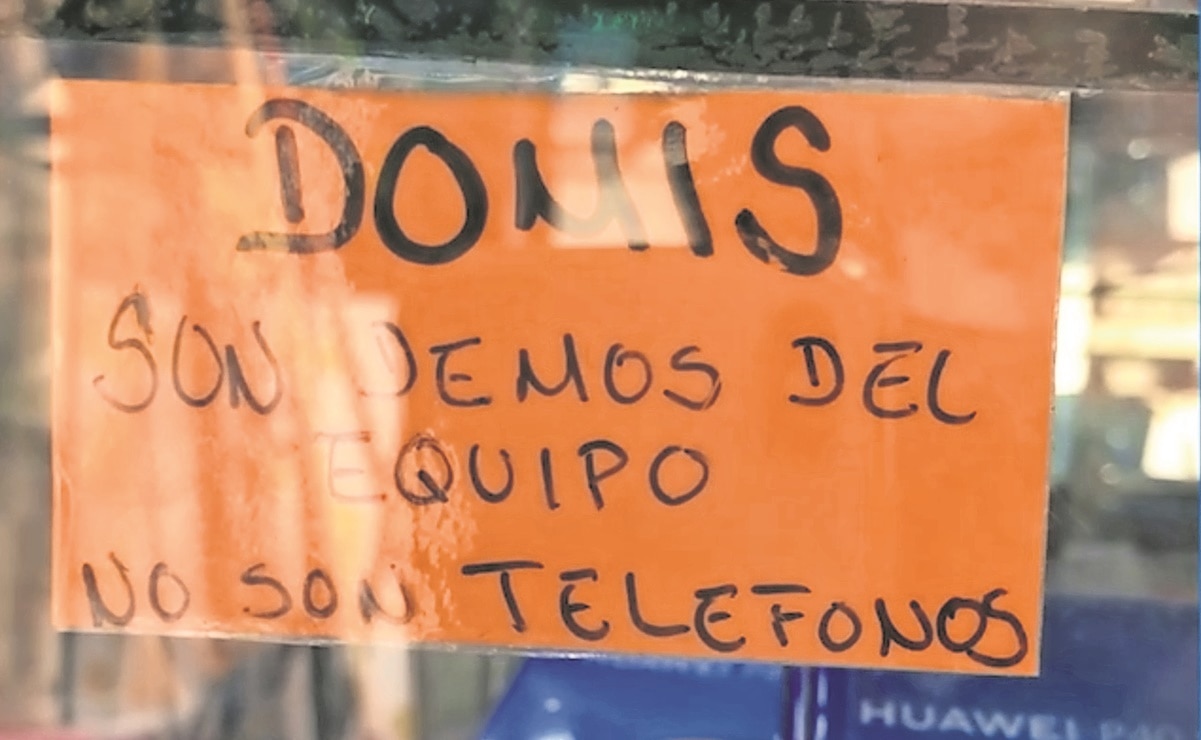 DOMIS
SON DEMOS DEL
EQUIPO
NO SON TELEFONOS
HUAWEI P40